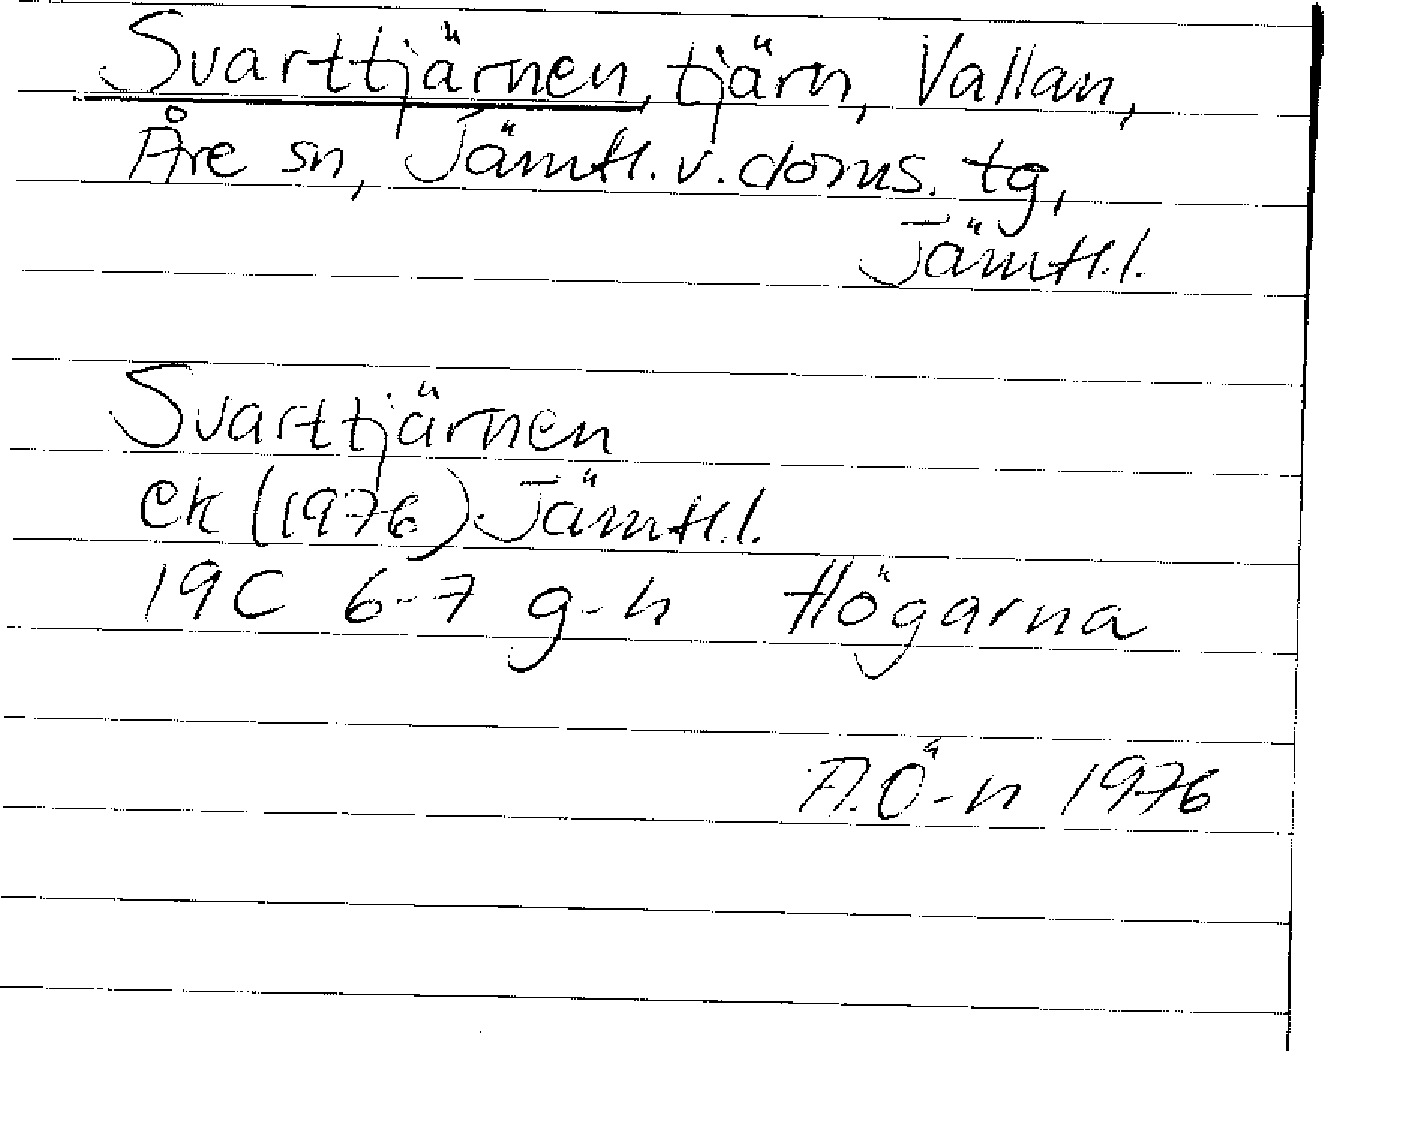 Svarttjärnen, tjärn, Vallan,
Åre sn, Jämtl. v. doms. tg,
Jämtl. l.
Svarttjärnen
ek (1976) Jämtl. l.
19C 6-7 g-h Högarna
A.Ö-n 1976